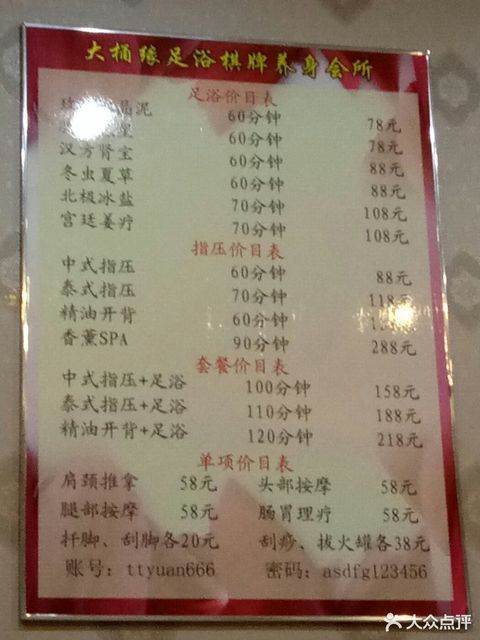 大桶缘足浴棋牌养身会所
足浴价目表
晶泥 60分钟 78元
60分钟 78元
汉方肾宝 60分钟 88元
冬虫夏草 60分钟 88元
北极冰盐 70分钟 108元
宫廷姜疗 70分钟 108元
指压价目表
中式指压 60分钟 88元
泰式指压 70分钟 118元
精油开背 60分钟
香薰SPA 90分钟 288元
套餐价目表
中式指压+足浴 100分钟 158元
泰式指压+足浴 110分钟 188元
精油开背+足浴 120分钟 218元
单项价目表
肩颈推拿 58元 头部按摩 58元
腿部按摩 58元 肠胃理疗 58元
扦脚、刮脚各20元 刮痧、拔火罐各38元
账号：ttyuan666 密码：asdfg123456
大众点评